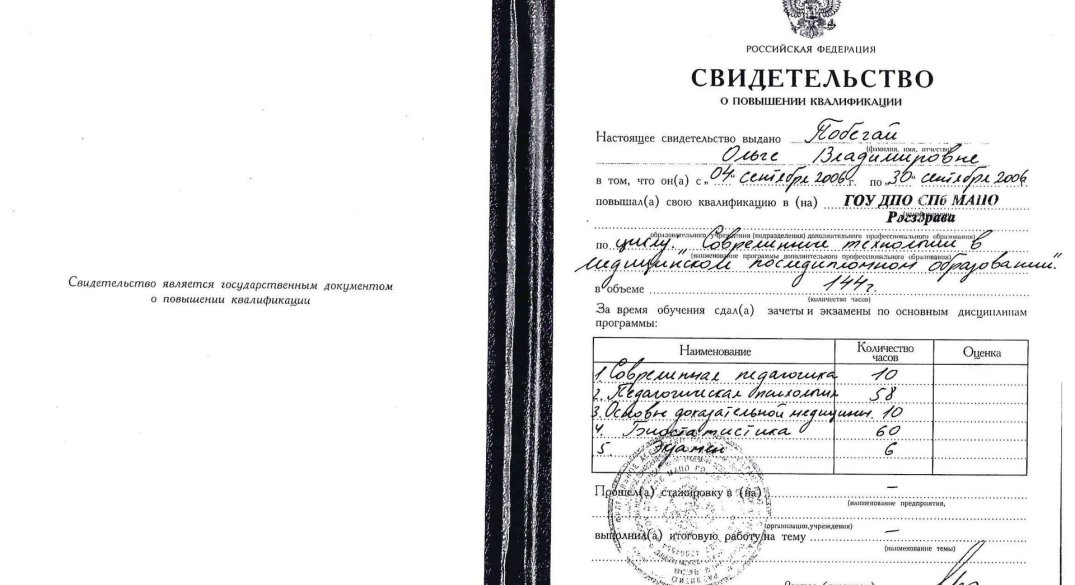 Свидетельство является государственным документом
о повышении квалификации
РОССИЙСКАЯ ФЕДЕРАЦИЯ
СВИДЕТЕЛЬСТВО
О ПОВЫШЕНИИ КВАЛИФИКАЦИИ
Настоящее свидетельство выдано Побегай
(фамилия, имя, отчество)
Ольге Владимировне
в том, что он(а) с „04" сентября 2006 г. по „30" сентября 2006
повышал(а) свою квалификацию в (на) ГОУ ДПО СПб МАПО
Росздрава
(наименование)
образовательного учреждения (подразделения) дополнительного профессионального образования)
по циклу: „Современные технологии в
(наименование программы дополнительного профессионального образования)
медицинском последипломном образовании."
в объеме 144 г.
(количество часов)
За время обучения сдал(а) зачеты и экзамены по основным дисциплинам
программы:
Наименование Количество часов Оценка
1. Современная педагогика 10
2. Педагогическая психология 58
3. Основы доказательной медицины. 10
4. Биостатистика 60
5. Экзамен 6
Прошел(а) стажировку в (на) –
(наименование предприятия,
организации, учреждения)
выполнил(а) итоговую работу на тему –
(наименование темы)